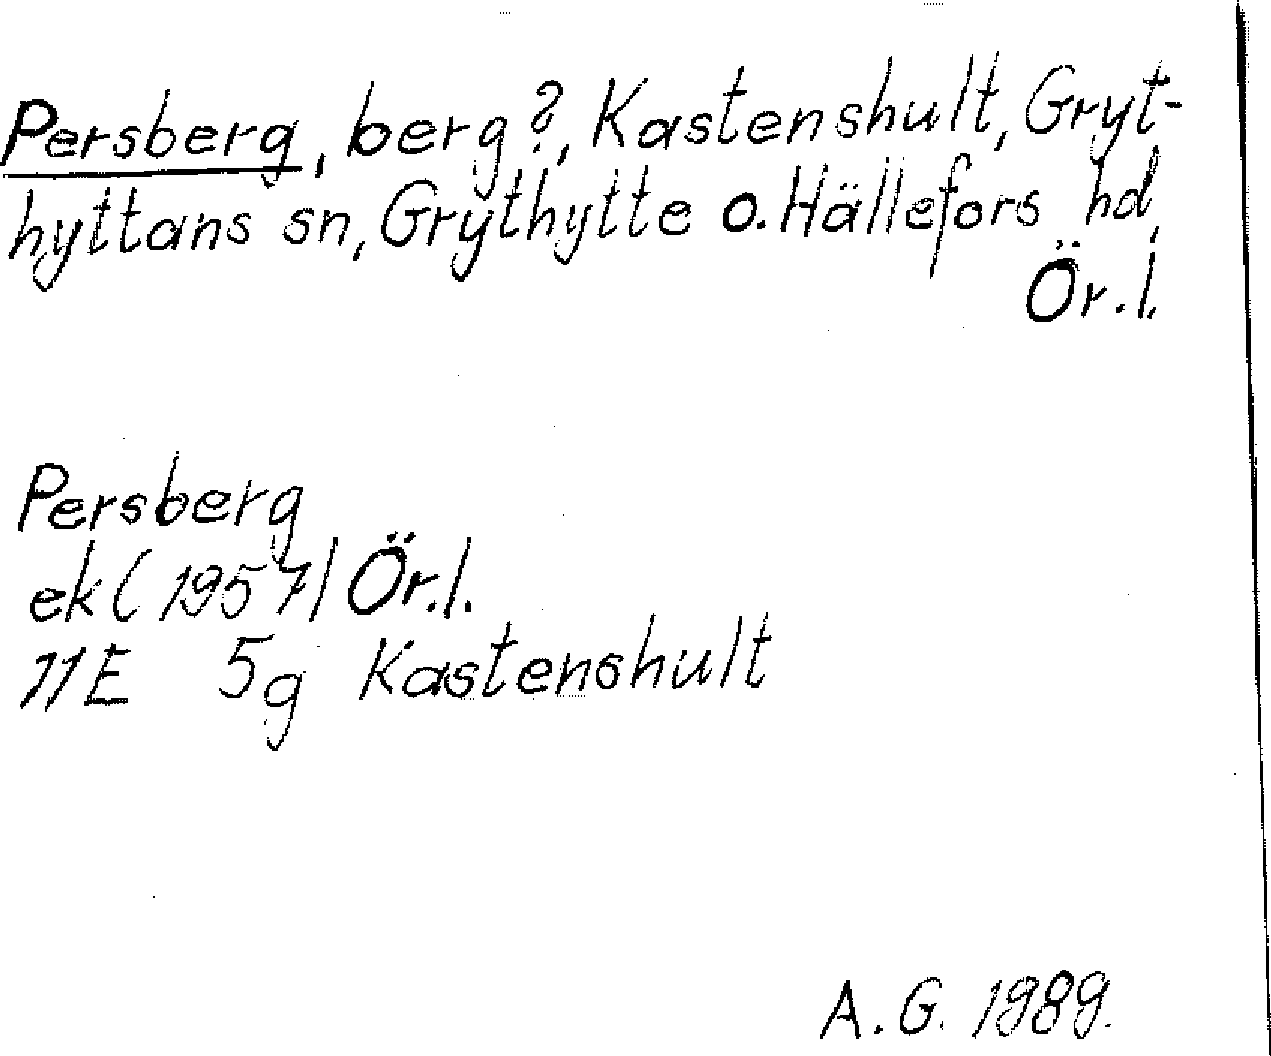 Persberg, berg?, Kastenshult, Gryt-
hyttans sn, Grythytte o. Hällefors hd,
Ör. l.
Persberg
ek (1957) Ör. l.
11E 5g Kastenshult
A. G. 1989.